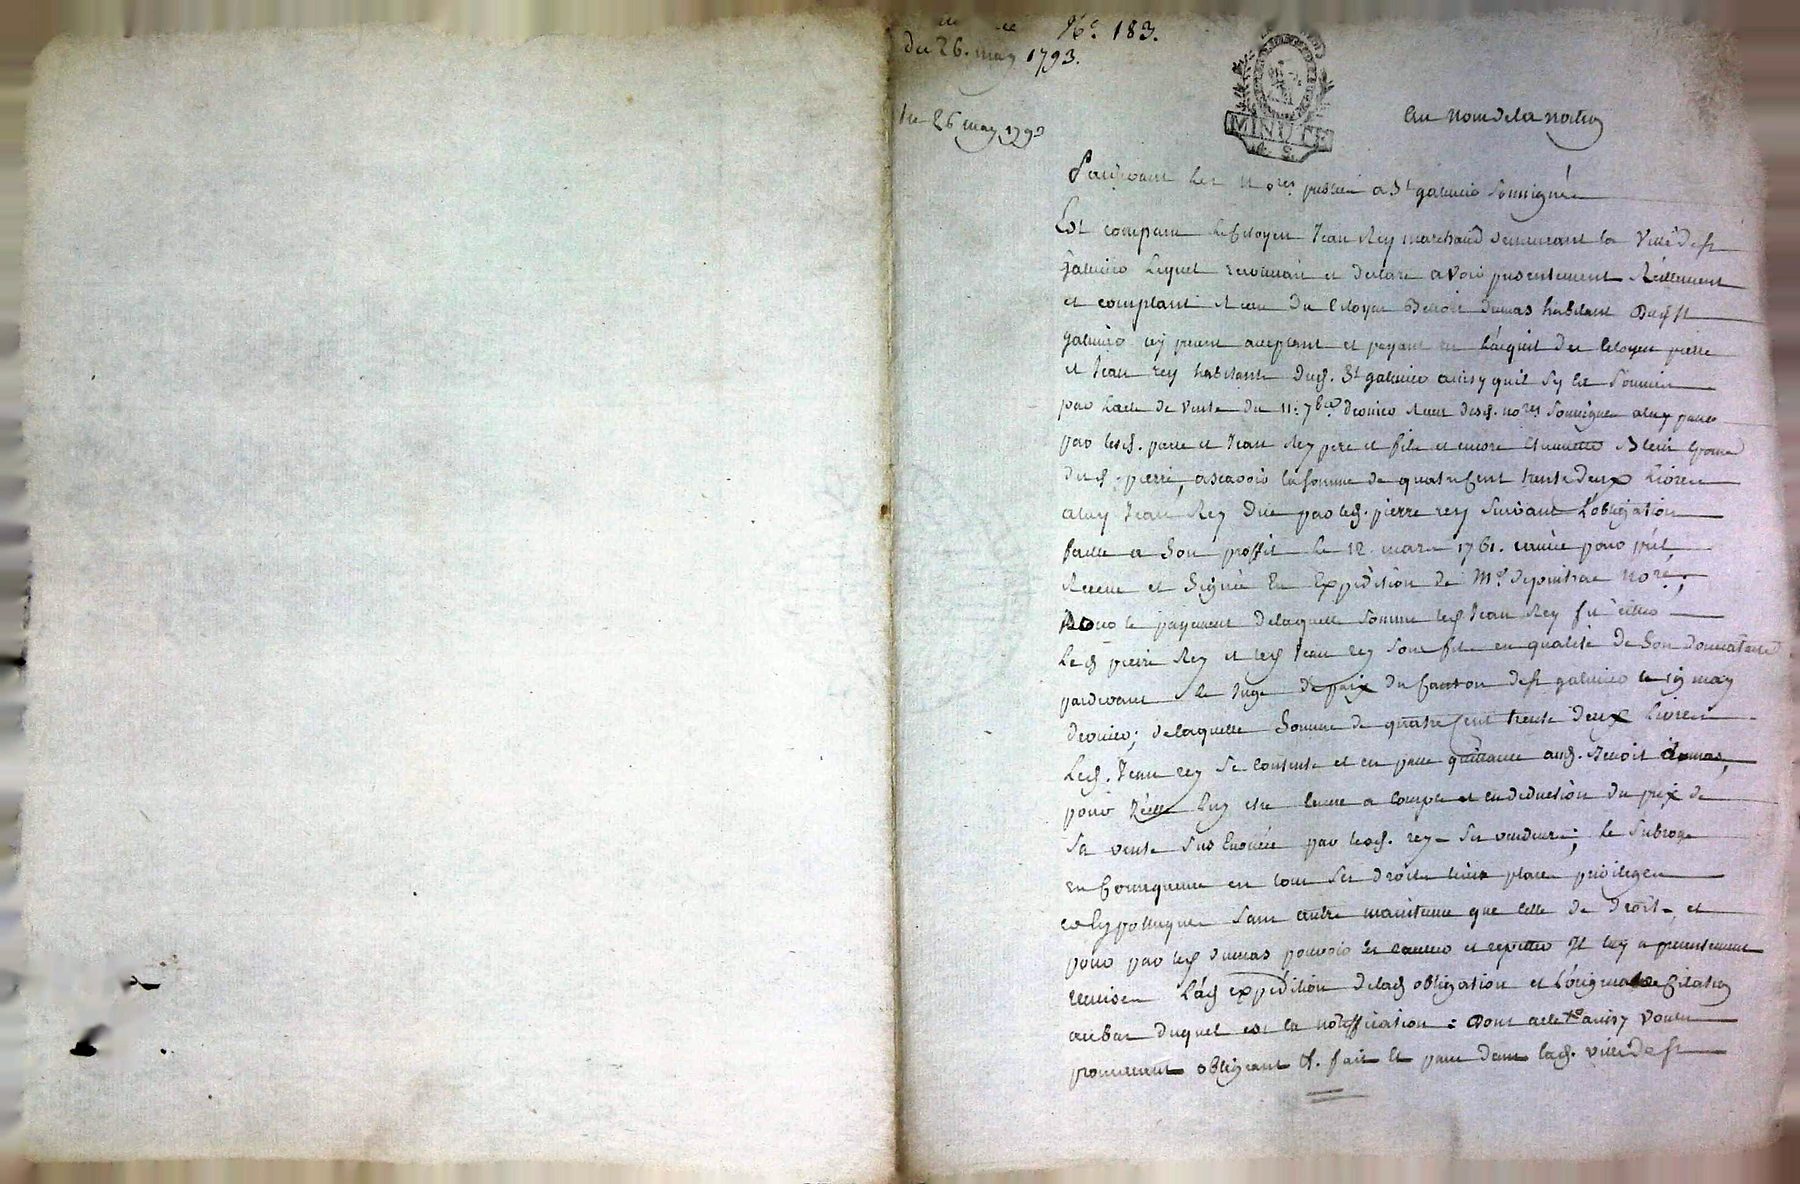 N.° 183.
du 26. may 1793.
MINUTE
4. S.
Le 26 may 1793
au nom de la nation
Pardevant les nores publics a St galmier soussignés
Est comparu le Citoyen Jean Rey marchand demeurant la Ville de st
galmier lequel reconnait et declare avoir presentement Réellement
et comptant Receu du Citoyen Benoit dumas habitant Dud. st
galmier icy present acceptant et payant en l'acquit des Citoyen pierre
et Jean rey habitants dud. St galmier ainsy quil sy est soumis
par l'acte de vente du 11. 7bre dernier Receu desd. nores soussignés a luy passé
par lesd. pierre et Jean Rey pere et fils et encore
dud. pierre, ascavoir la somme de quatre Cent trente deux Livres
a luy Jean Rey due par led. pierre rey suivant L'obligation
faitte a son proffit le 12. mars 1761. causée pour prêt
Receue et signée En Expédition de Mre depuitrac nore;
Pour le payement de laquelle somme led. Jean Rey fit citer
Led. pierre Rey et led. Jean rey son fils en qualité de son donnataire
pardevant le Juge de paix du Canton de st galmier le 19 may
dernier; de laquelle somme de quatre Cent trente deux Livres
Led. Jean rey se contente et en passe quittance aud. Benoit dumas,
pour Icelle luy etre tenue a compte et en deduction du prix de
la vente sus Enoncée par lesd. rey ses vendeurs; le subroge
en Consequence en tous ses droits lieux places privileges
et hypotteques sans autre maintenue que celle de droit, et
pour par led. dumas pouvoir les exercer et repetter Il luy a presentement
remises L'ad. expédition de lad. obligation et L'original de Citation
au bas duquel est la notiffication: Dont acte &a ainsy voulu
promettant obligeant &. fait et passé dans lad. ville de st